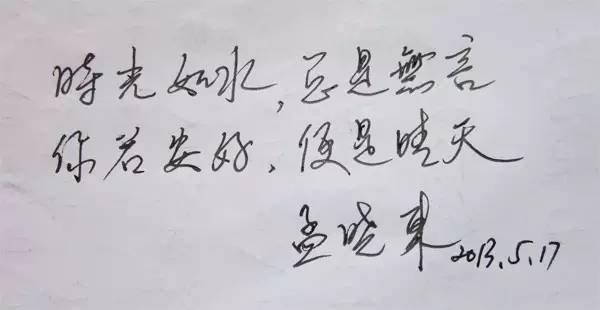 時光如水，总是無言
你若安好，便是晴天
孟晓東 2013.5.17